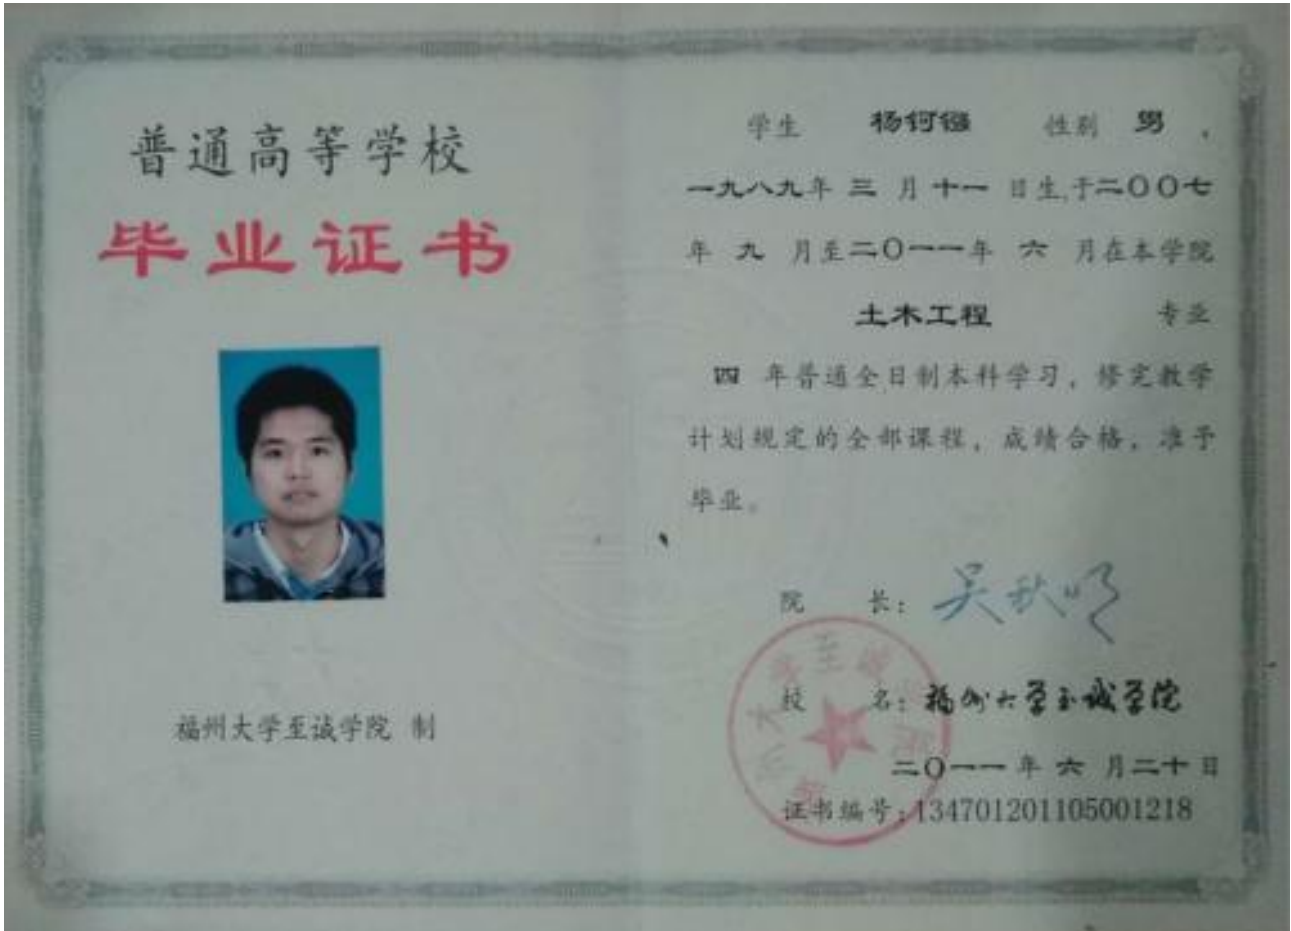 普通高等学校
毕业证书
福州大学至诚学院 制
学生 杨钶镪 性别 男 ,
一九八九年 三 月 十一 日生,于二〇〇七
年 九 月至二〇一一年 六 月在本学院
土木工程 专业
四 年普通全日制本科学习,修完教学
计划规定的全部课程,成绩合格,准予
毕业。
院 长: 吴秋明
校 名: 福州大学至诚学院
二〇一一年 六 月二十日
证书编号:134701201105001218